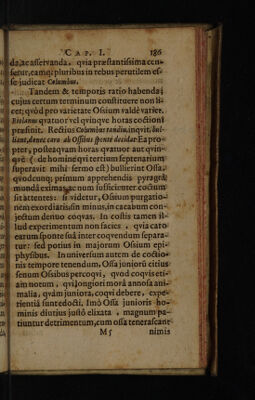 CAP. I. 186
da, ac asservanda. quia præstantissima cen-
setur, eamq; pluribus in rebus perutilem es-
se judicat Columbus.
Tandem & temporis ratio habenda;
cujus certum terminum constituere non li-
cet; quòd pro varietate Ossium valdè variet.
Riolanus quatuor vel quinque horas coctioni
præfinit. Rectius Columbus tandiu, inqvit, bul-
liant, donec caro ab Ossibus sponte decidat. Ea pro-
pter, post eaqvam horas qvatuor aut qvin-
qve (de homine qvi tertium septenarium
superavit mihi sermo est) bullierint Ossa,
qvodcunq; primum apprehendis pyragrâ
mundâ eximas: ac num sufficienter coctum
sit attentes: si videtur, Ossium purgatio-
nem exordiaris sin minus, in cacabum con-
jectum denuo coqvas. In costis tamen il-
lud experimentum non facies, qvia cato-
earum sponte ferâ inter coqvendum separa-
tur: sed potius in majorum Ossium epi-
physibus. In universum autem de coctio-
nis tempore tenendum. Ossa juniorū citius
senum Ossibus percoqvi, quod coqvis eti-
am notum, qvi longiori morâ annosa ani-
malia, qvàm juniora, coqvi debere, expe-
rientiâ sunt edocti. Imò Ossa junioris ho-
minis diutius justò elixata, magnum pa-
tiuntur detrimentum, cum ossa tenerascant
M 5 nimis